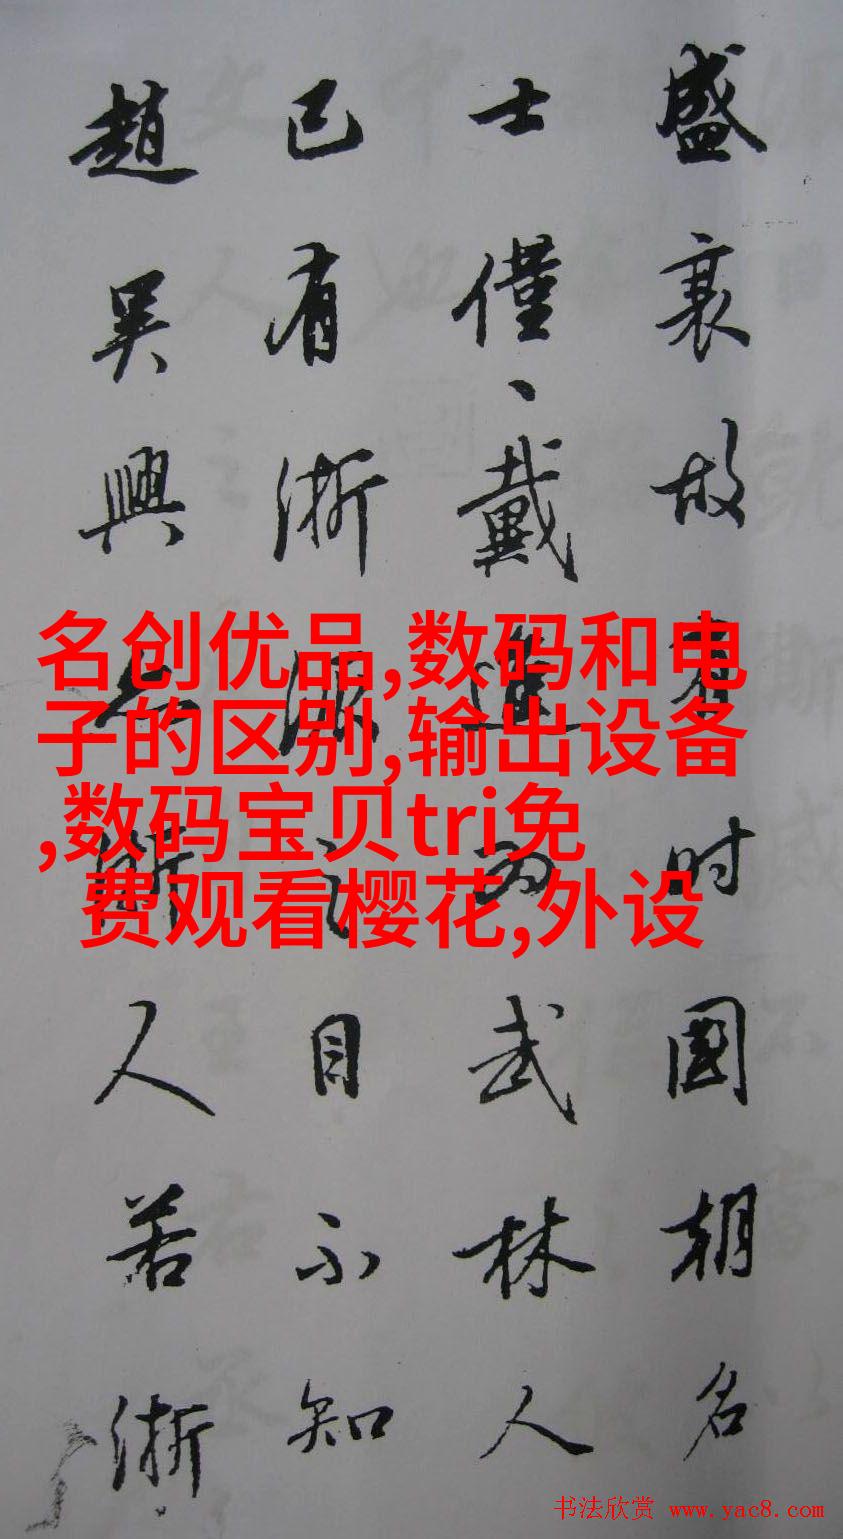 盛衰故有时國朝名
士僅、戴進為武林人
已有浙派之目不知
趙吳興亦浙人若浙
名创优品,数码和电
子的区别,输出设备
,数码宝贝tri免
费观看樱花,外设
书法欣赏 www.yac8.com